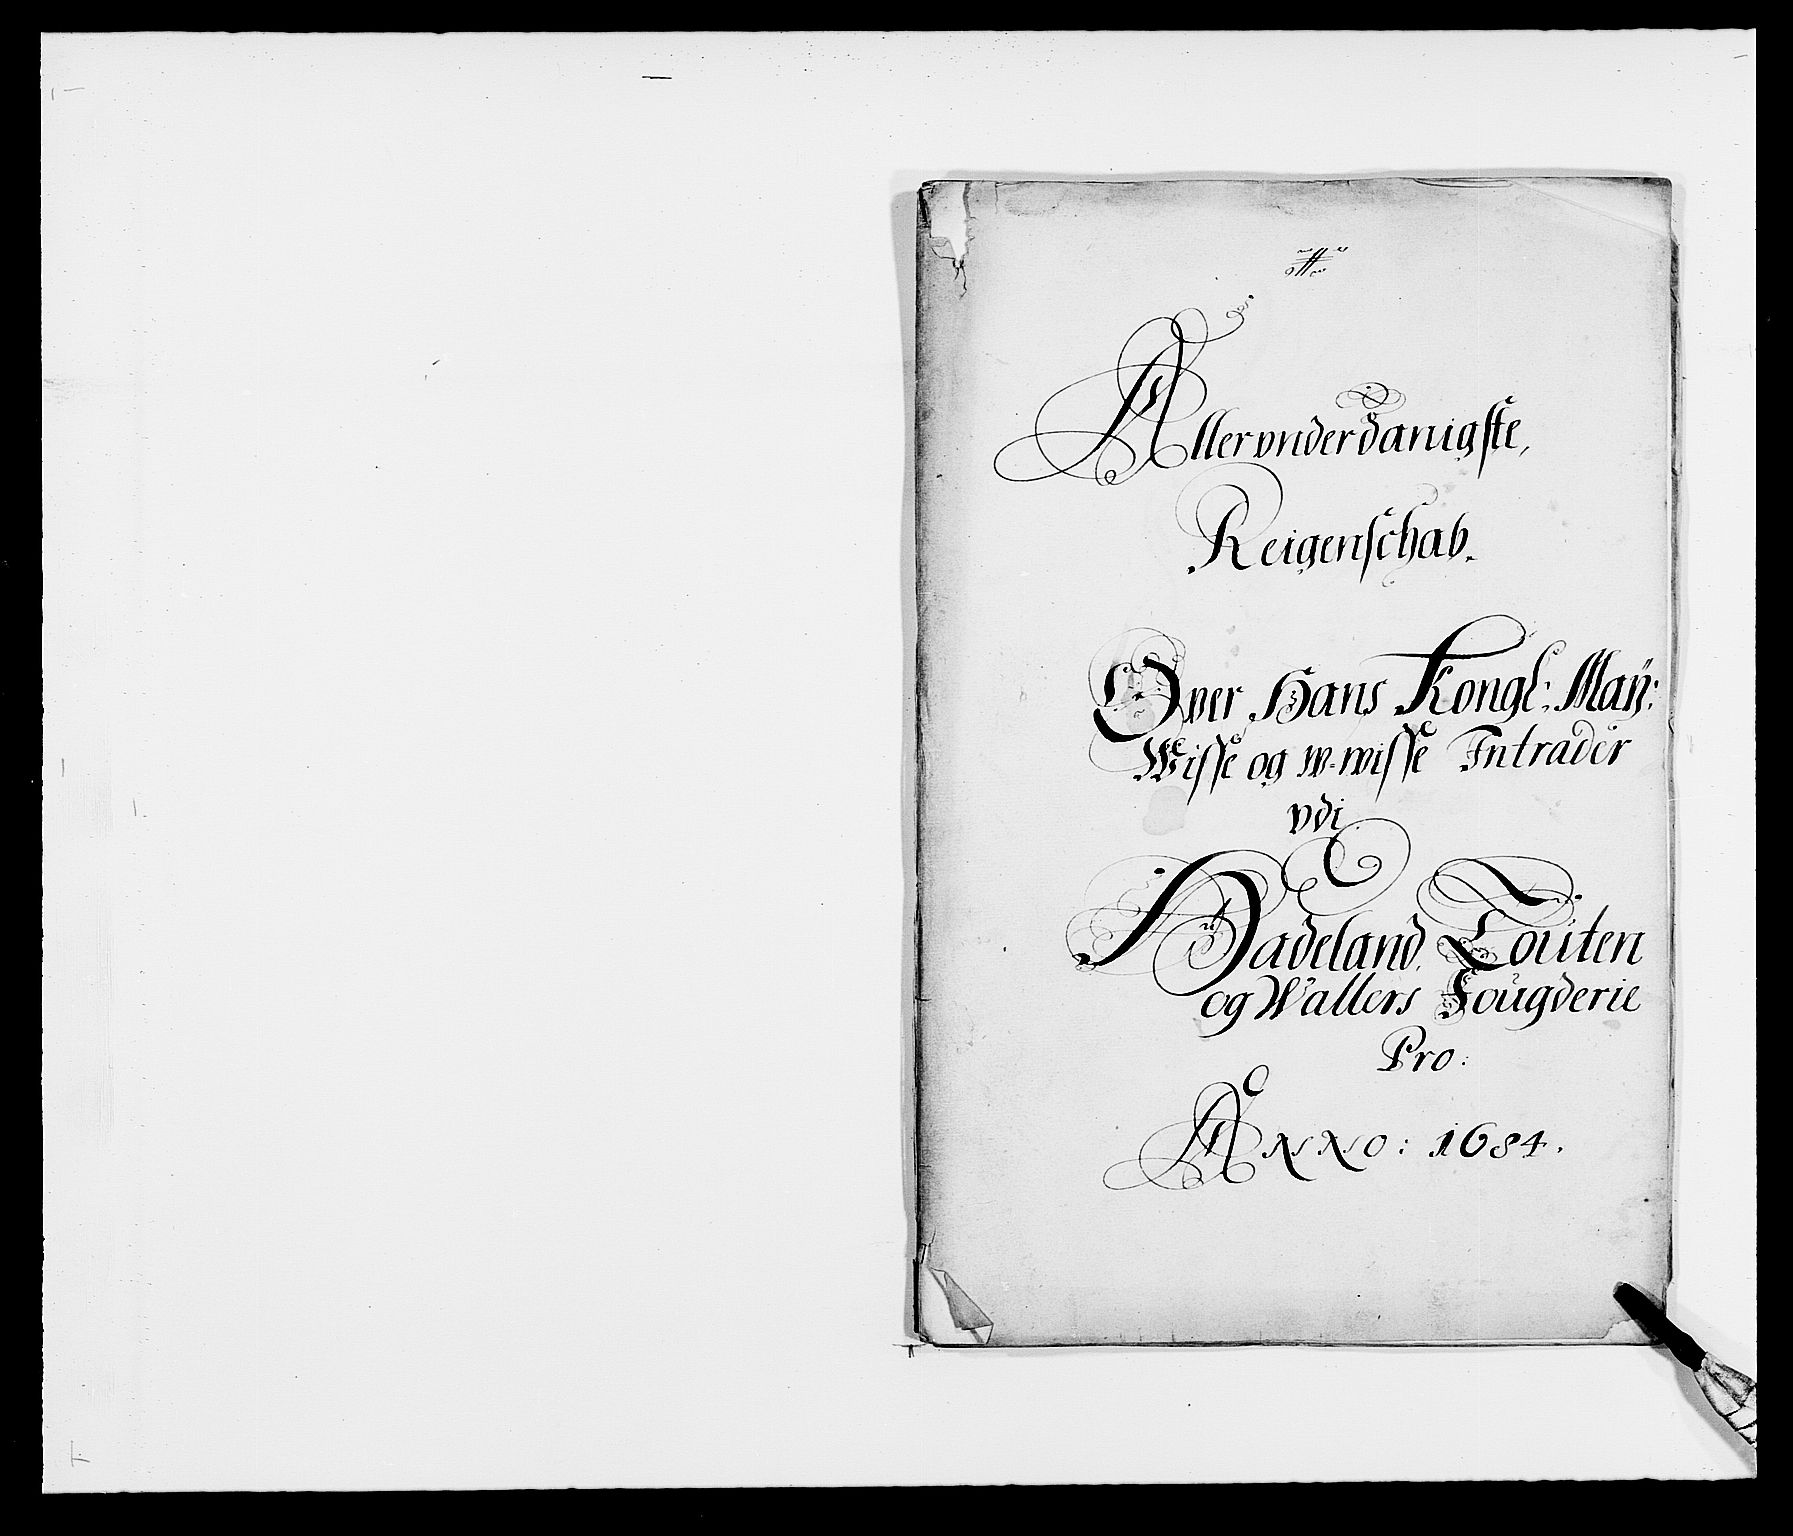 Allervnderdanigste,
Reigenschab.
Over Hans Kongl: May:
Wisse og w-wisse Intrader
vdi
Hadeland, Touten
og Wallers Fougderie
Pro:
ANNO: 1684.